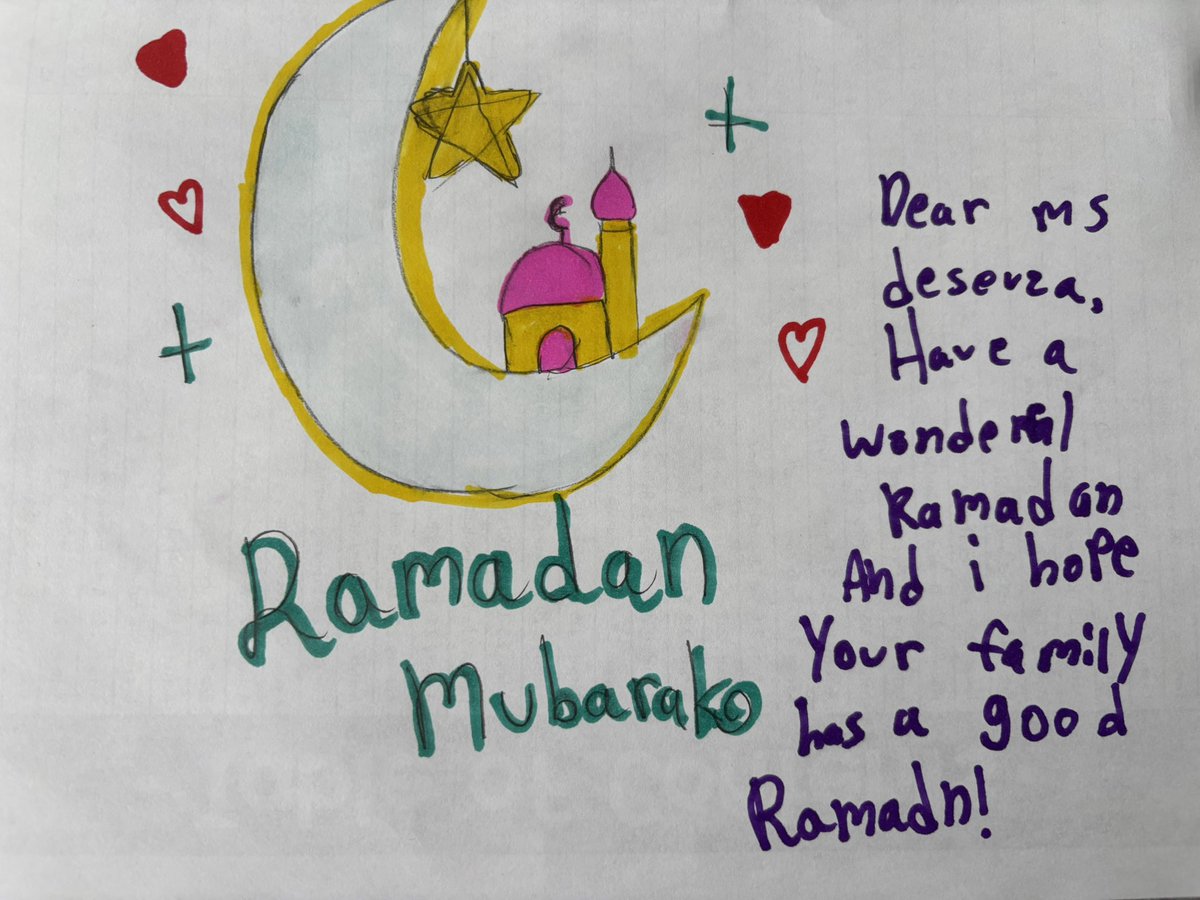 Ramadan
Mubarak
Dear ms
deserza,
Have a
wonderful
Ramadan
And i hope
Your family
has a good
Ramadn!